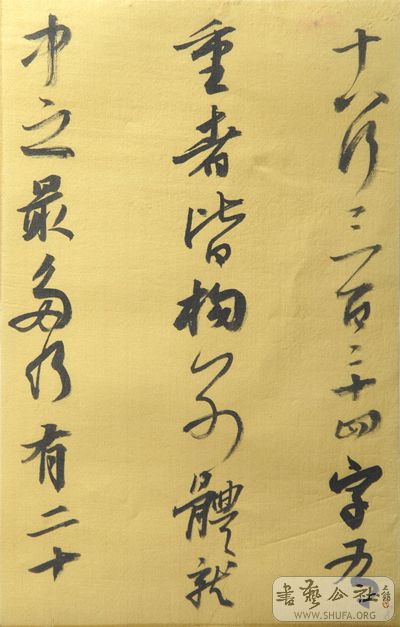 十八行三百二十四字
重者皆构别體就
中之最多乃有二十
書藝公社
WWW.SHUFA.ORG